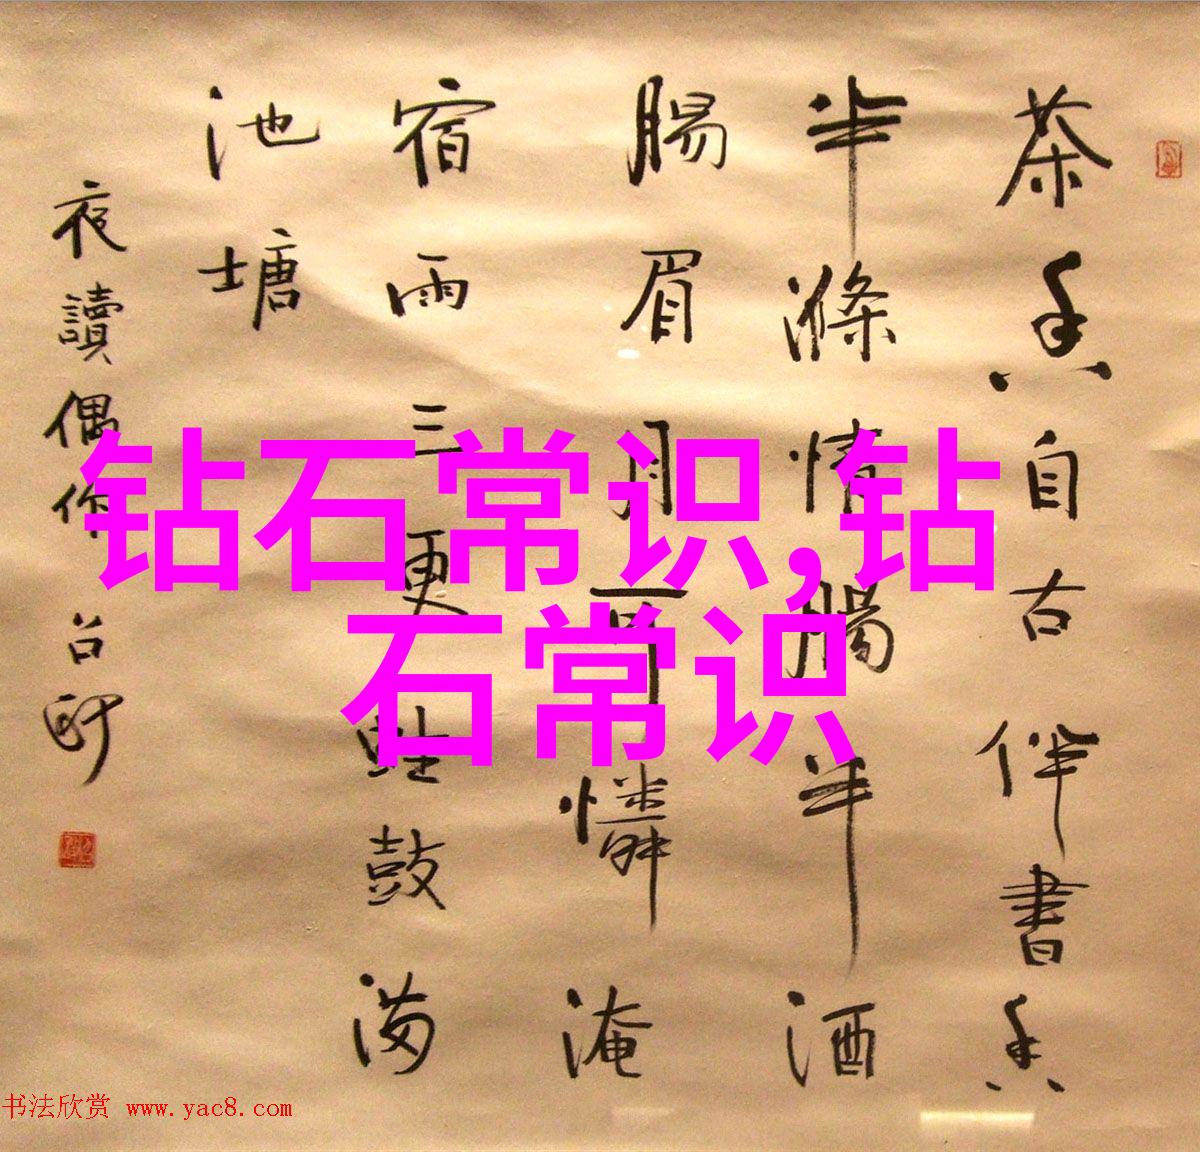 茶香自古伴書香
半滌情腸半酒
腸眉月一憐淹
宿雨三更鼓满
池塘
夜讀偶作 台
钻石常识,钻
石常识
书法欣赏 www.yac8.com